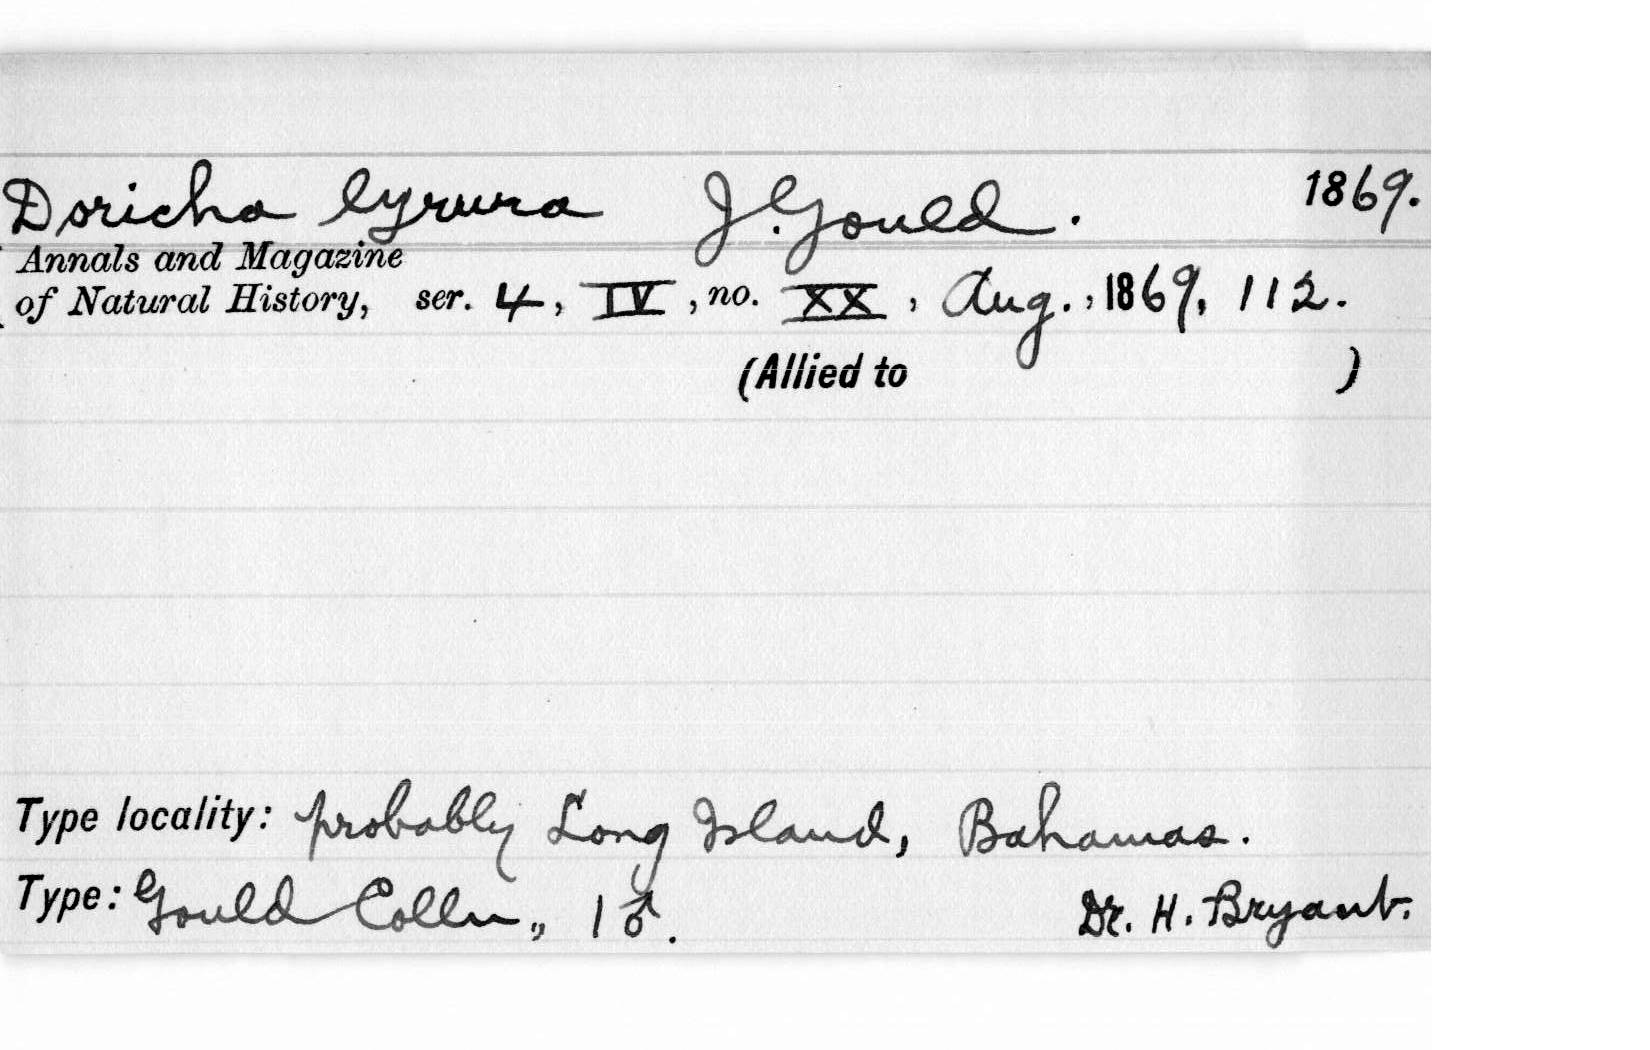 Doricha lyrura J. Gould. 1869.
Annals and Magazine
of Natural History, ser. 4, IV, no. XX, Aug., 1869, 112.
(Allied to )
Type locality: probably Long Island, Bahamas.
Type: Gould Colln., 1 ♂. Dr. H. Bryant.